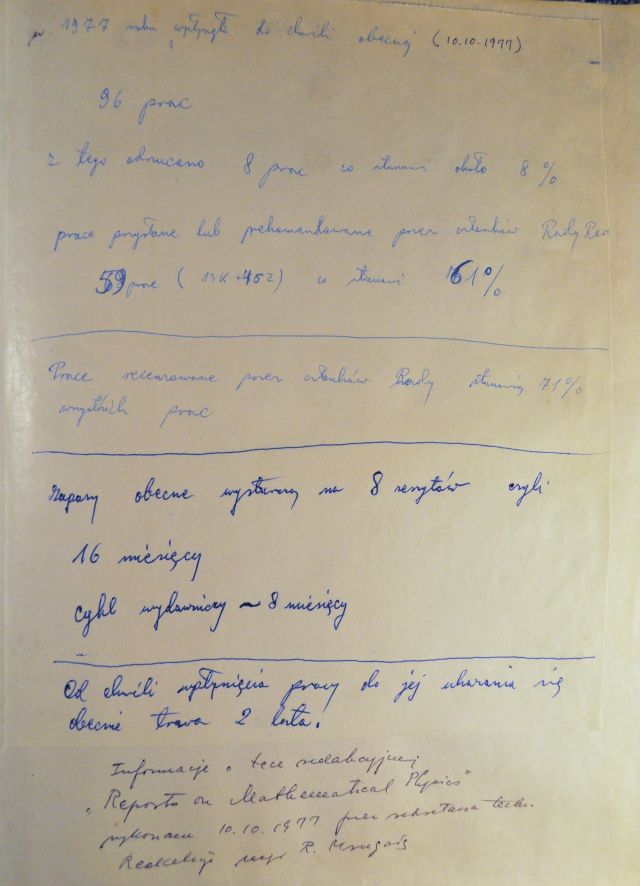 w. 1977 roku wpłynęło do chwili obecnej (10.10.1977)
96 prac
z tego odrzucono 8 prac co stanowi około 8%
prace przysłane lub rekomendowane przez członków Rady Red
59 prac ( co stanowi 61%
Prace recenzowane przez członków Rady stanowią 71%
wszystkich prac
Zapasy obecne wystarczą na 8 zeszytów czyli
16 miesięcy
cykl wydawniczy ~ 8 miesięcy
Od chwili wpłynięcia pracy do jej ukazania się
obecnie trwa 2 lata.
Informacje o tece redakcyjnej
„Reports on Mathematical Physics"
wykonane 10.10.1977 przez sekretarza techn.
Redakcji mgr R. Mrugałę